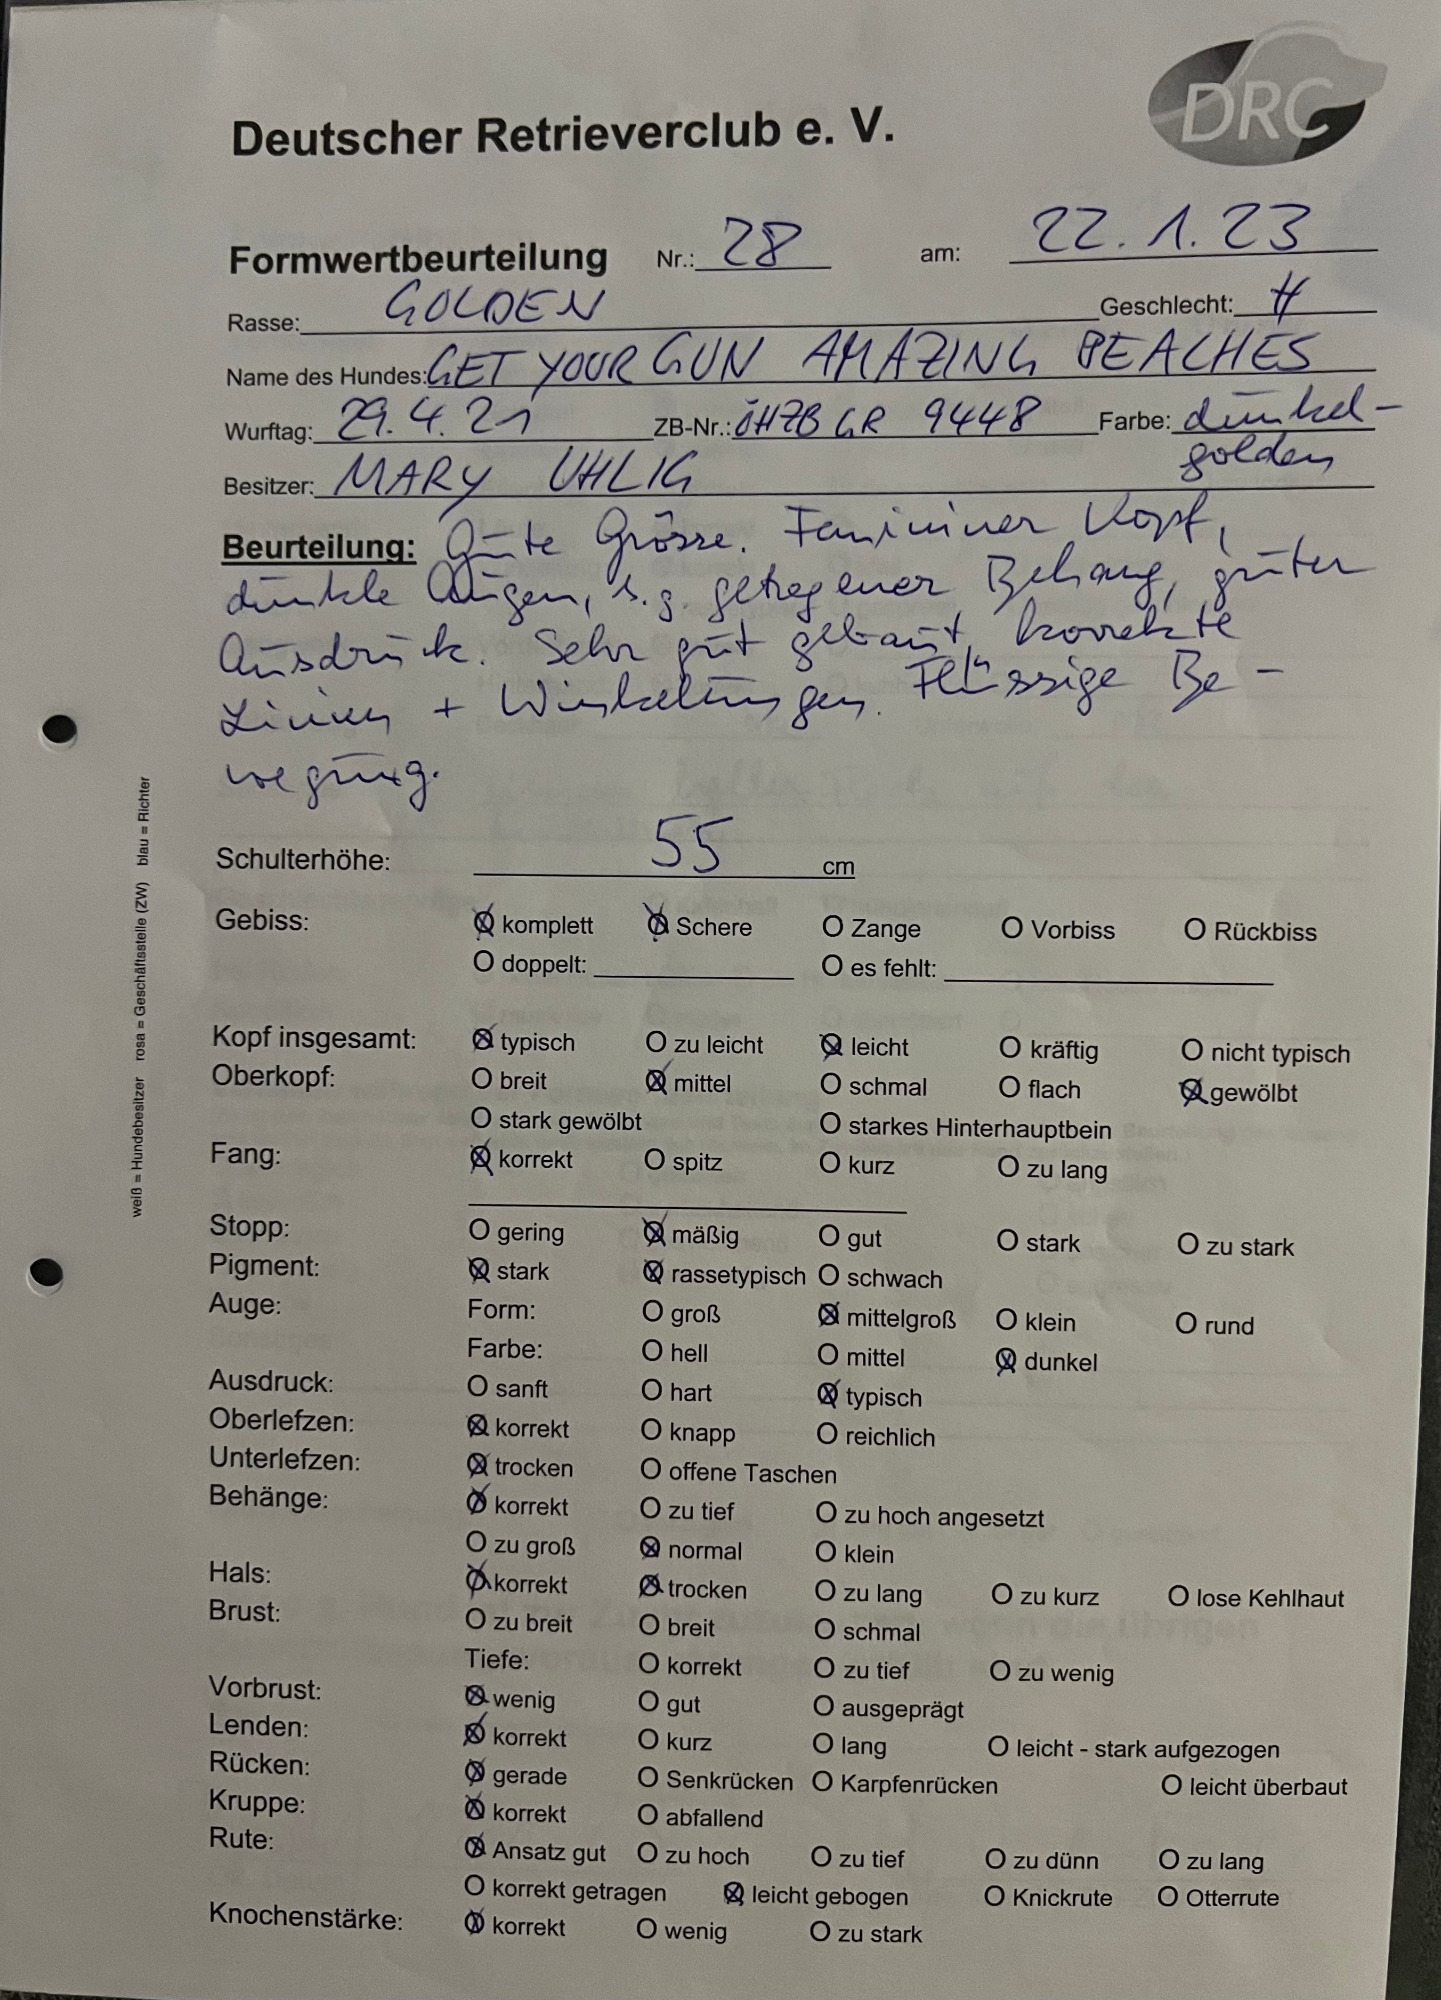 DRC
Deutscher Retrieverclub e. V.
Formwertbeurteilung Nr.: 28 am: 22.1.23
Rasse: GOLDEN Geschlecht: H
Name des Hundes: GET YOUR GUN AMAZING PEACHES
Wurftag: 29.4.21 ZB-Nr.: ÖHZB GR 9448 Farbe: dunkel-
golden
Besitzer: MARY UHLIG
Beurteilung: Gute Grösse. Femininer Kopf,
dunkle Augen, s.g. getragener Behang, guter
Ausdruck. Sehr gut gebaut, korrekte
Linien + Winkelungen. Flüssige Be-
wegung.
weiß = Hundebesitzer rosa = Geschäftsstelle (ZW) blau = Richter
Schulterhöhe: 55 cm
Gebiss: komplett Schere Zange Vorbiss Rückbiss
doppelt: es fehlt:
Kopf insgesamt: typisch zu leicht leicht kräftig nicht typisch
Oberkopf: breit mittel schmal flach gewölbt
stark gewölbt starkes Hinterhauptbein
Fang: korrekt spitz kurz zu lang
Stopp: gering mäßig gut stark zu stark
Pigment: stark rassetypisch schwach
Auge: Form: groß mittelgroß klein rund
Farbe: hell mittel dunkel
Ausdruck: sanft hart typisch
Oberlefzen: korrekt knapp reichlich
Unterlefzen: trocken offene Taschen
Behänge: korrekt zu tief zu hoch angesetzt
zu groß normal klein
Hals: korrekt trocken zu lang zu kurz lose Kehlhaut
Brust: zu breit breit schmal
Tiefe: korrekt zu tief zu wenig
Vorbrust: wenig gut ausgeprägt
Lenden: korrekt kurz lang leicht - stark aufgezogen
Rücken: gerade Senkrücken Karpfenrücken leicht überbaut
Kruppe: korrekt abfallend
Rute: Ansatz gut zu hoch zu tief zu dünn zu lang
korrekt getragen leicht gebogen Knickrute Otterrute
Knochenstärke: korrekt wenig zu stark